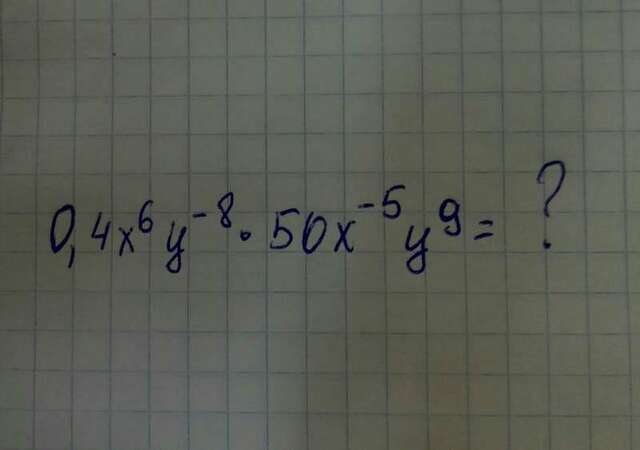 0,4x⁶y⁻⁸·50x⁻⁵y⁹= ?